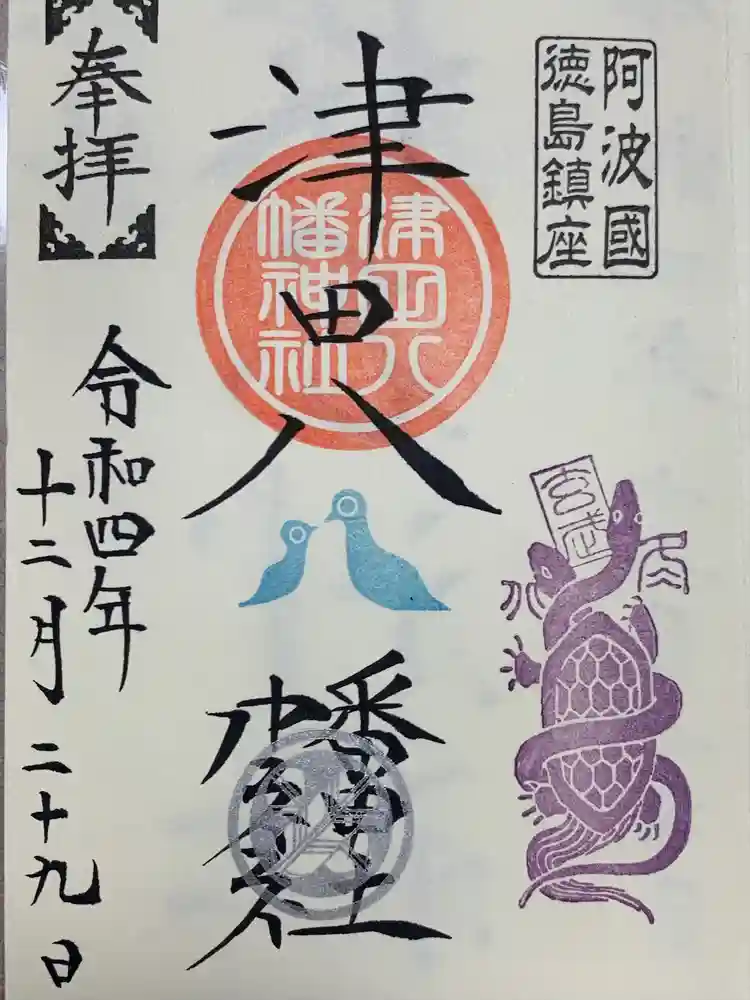 阿波國
徳島鎮座
玄武
津田八幡神社
津田八
幡神社
奉拝
令和四年
十二月二十九日